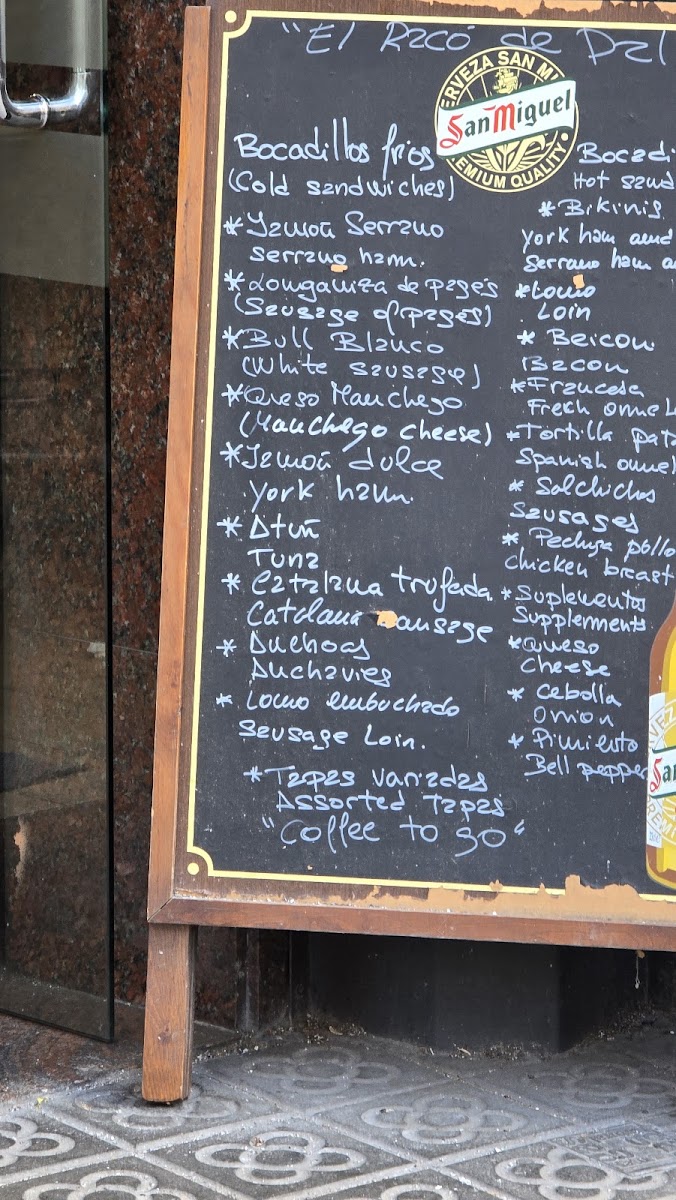 "El Racó de Dal
CERVEZA SAN MI
San Miguel
PREMIUM QUALITY
Bocadillos frios
(Cold sandwiches)
* Jamón Serrano
serrano ham.
* Longaniza de pagés
(Sausage of pages)
* Bull Blanco
(White sausage)
* Queso Manchego
(Manchego cheese)
* Jamón dulce
york ham.
* Atún
Tuna
* Catalana trufada
Catalana sausage
* Anchoas
Anchavies
* Lomo embuchado
Sausage Loin.
* Tapas variadas
Assorted tapas
"Coffee to go"
Bocadi
Hot sand
* Bikinis
york ham and
Serrano ham a
* Lomo
Loin
* Beicon
Bacon
* Francesa
Freh omel
* Tortilla pata
Spanish omel
* Salchichas
Sausages
* Pechuga pollo
chicken breast
* Suplementos
Supplerments
* Queso
Cheese
* Cebolla
Onion
* Pimiento
Bell pepper
VEZA
Sa
PREMI